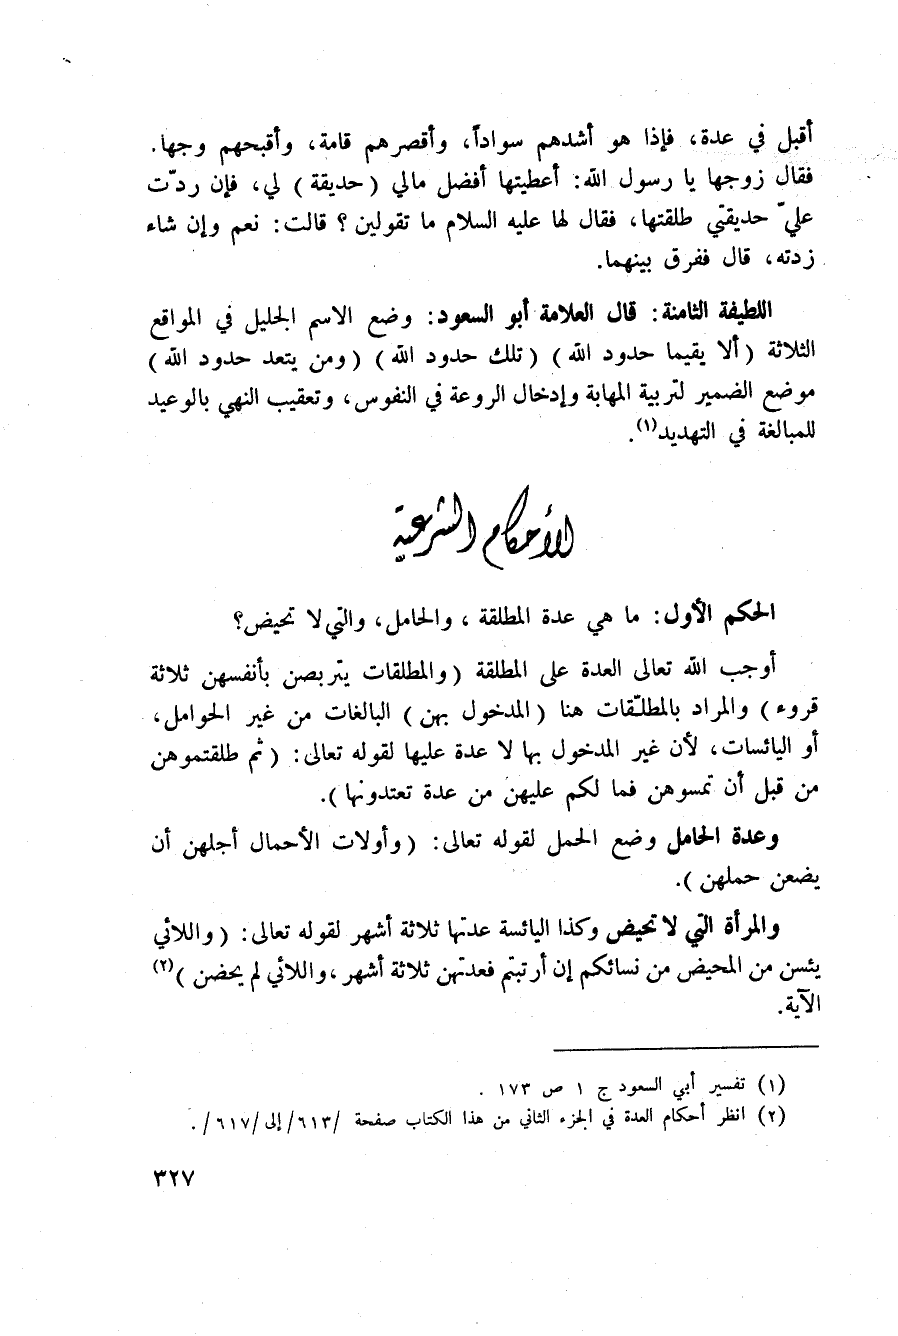 أقبل في عدة، فإذا هو أشدهم سواداً، وأقصرهم قامة، وأقبحهم وجها.
فقال زوجها يا رسول الله: أعطيتها أفضل مالي (حديقة) لي، فإن ردّت
عليّ حديقتي طلقتها، فقال لها عليه السلام ما تقولين؟ قالت: نعم وإن شاء
زدته، قال ففرق بينهما.
اللطيفة الثامنة: قال العلامة أبو السعود: وضع الاسم الجليل في المواقع
الثلاثة (ألا يقيما حدود الله) (تلك حدود الله) (ومن يتعد حدود الله)
موضع الضمير لتربية المهابة وإدخال الروعة في النفوس، وتعقيب النهي بالوعيد
للمبالغة في التهديد(١).
الأحكام الشرعية
الحكم الأول: ما هي عدة المطلقة، والحامل، والتي لا تحيض؟
أوجب الله تعالى العدة على المطلقة (والمطلقات يتربصن بأنفسهن ثلاثة
قروء) والمراد بالمطلّقات هنا (المدخول بهن) البالغات من غير الحوامل،
أو اليائسات، لأن غير المدخول بها لا عدة عليها لقوله تعالى: (ثم طلقتموهن
من قبل أن تمسوهن فما لكم عليهن من عدة تعتدونها).
وعدة الحامل وضع الحمل لقوله تعالى: (وأولات الأحمال أجلهن أن
يضعن حملهن).
والمرأة التي لا تحيض وكذا اليائسة عدتها ثلاثة أشهر لقوله تعالى: (واللائي
يئسن من المحيض من نسائكم إن أرتبتم فعدتهن ثلاثة أشهر، واللائي لم يحضن)(٢)
الآية.
(١) تفسير أبي السعود ج ١ ص ١٧٣ .
(٢) انظر أحكام العدة في الجزء الثاني من هذا الكتاب صفحة /٦١٣/ إلى /٦١٧/.
٣٢٧